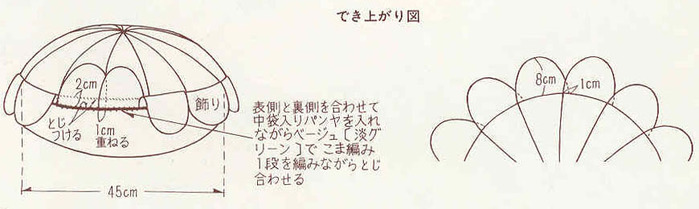 でき上がり図
2cm
とじ
つける
1cm
重ねる
飾り
45cm
表側と裏側を合わせて
中袋入りパンヤを入れ
ながらベージュ〔淡グ
リーン〕で こま編み
1段を編みながらとじ
合わせる
8cm
1cm